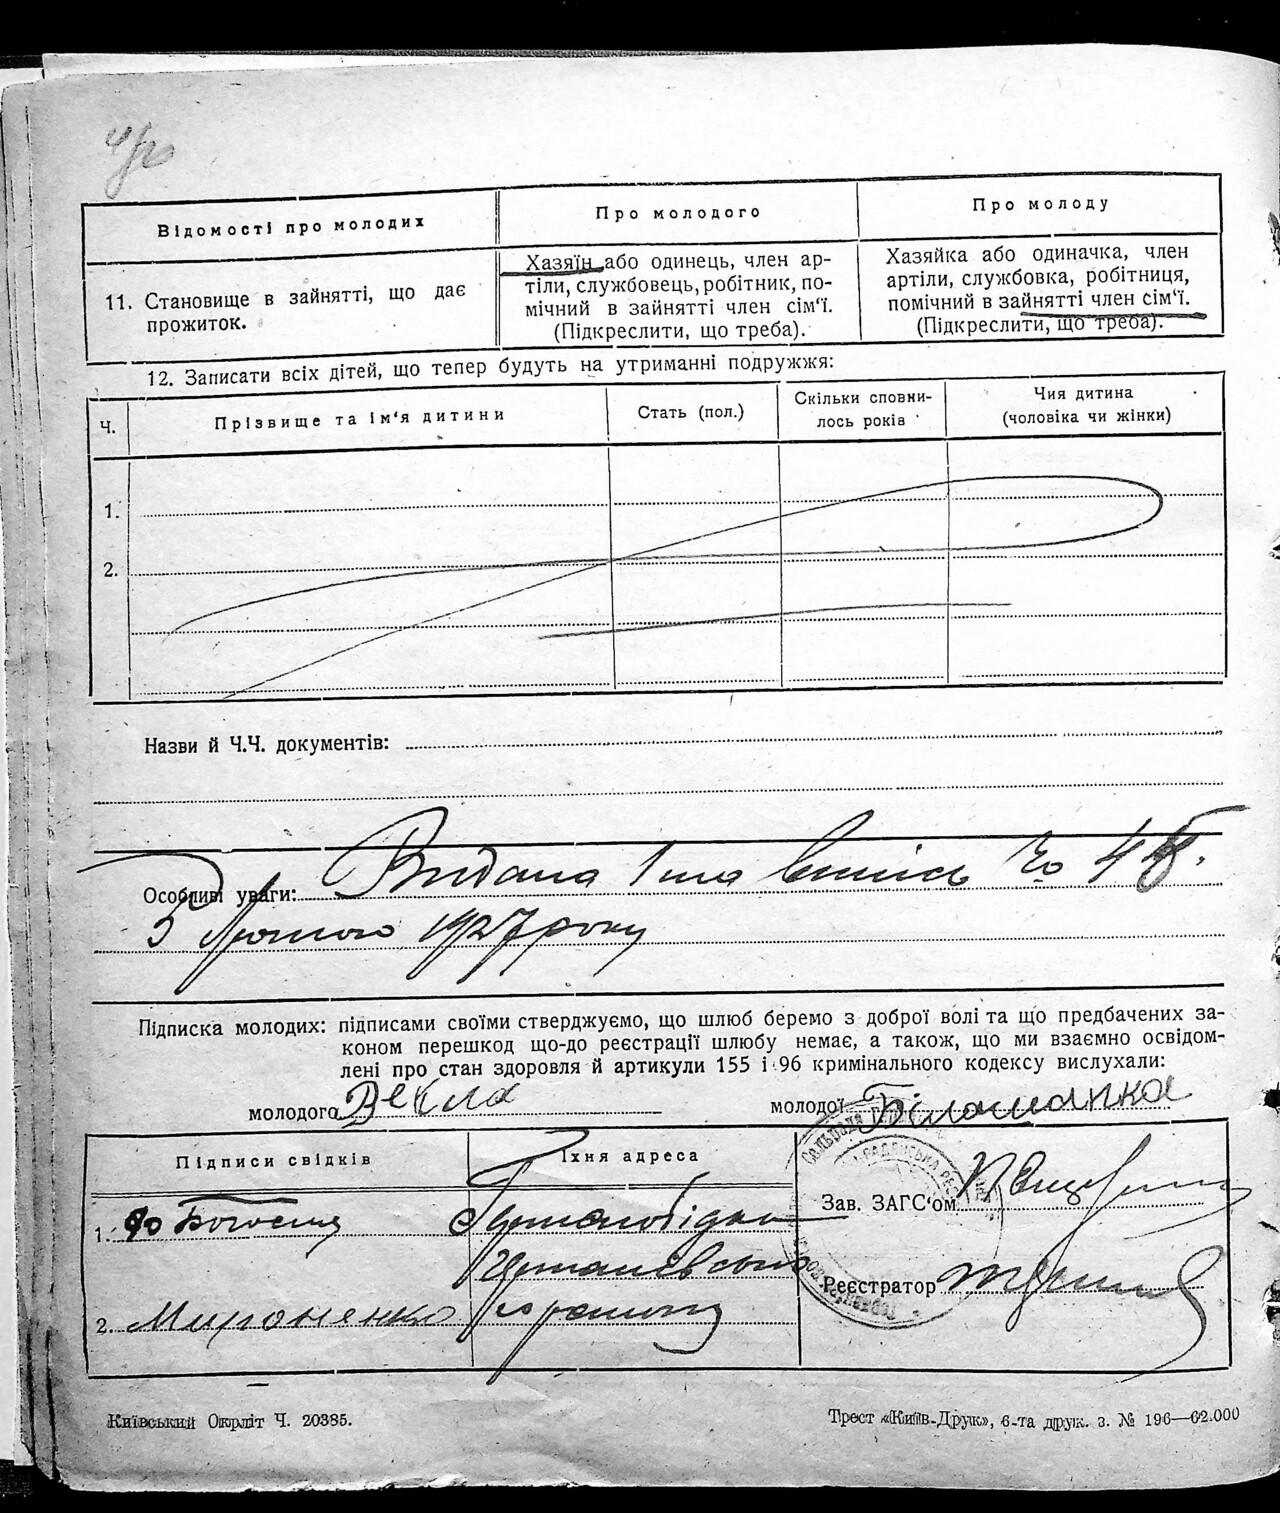 Відомості про молодих
Про молодого
Про молоду
11. Становище в зайнятті, що дає
прожиток.
Хазяїн або одинець, член ар-
тіли, службовець, робітник, по-
мічний в зайнятті член сім'ї.
(Підкреслити, що треба).
Хазяйка або одиначка, член
артіли, службовка, робітниця,
помічний в зайнятті член сім'ї.
(Підкреслити, що треба).
12. Записати всіх дітей, що тепер будуть на утриманні подружжя:
Ч.
Прізвище та ім'я дитини
Стать (пол.)
Скільки сповни-
лось років
Чия дитина
(чоловіка чи жінки)
1.
2.
Назви й Ч.Ч. документів:
Особливі уваги: Видана 1 ша випись
5 Лютого 1927 року
Підписка молодих: підписами своїми стверджуємо, що шлюб беремо з доброї волі та що предбачених за-
коном перешкод що-до реєстрації шлюбу немає, а також, що ми взаємно освідом-
лені про стан здоровля й артикули 155 і 96 кримінального кодексу вислухали:
молодого Векла молодої Білошапка
Підписи свідків
Їхня адреса
1.
2. Мироненко
Зав. ЗАГС'ом
Реєстратор
Київський Окрліт Ч. 20385.
Трест «Київ-Друк», 6-та друк. з. № 196—62.000